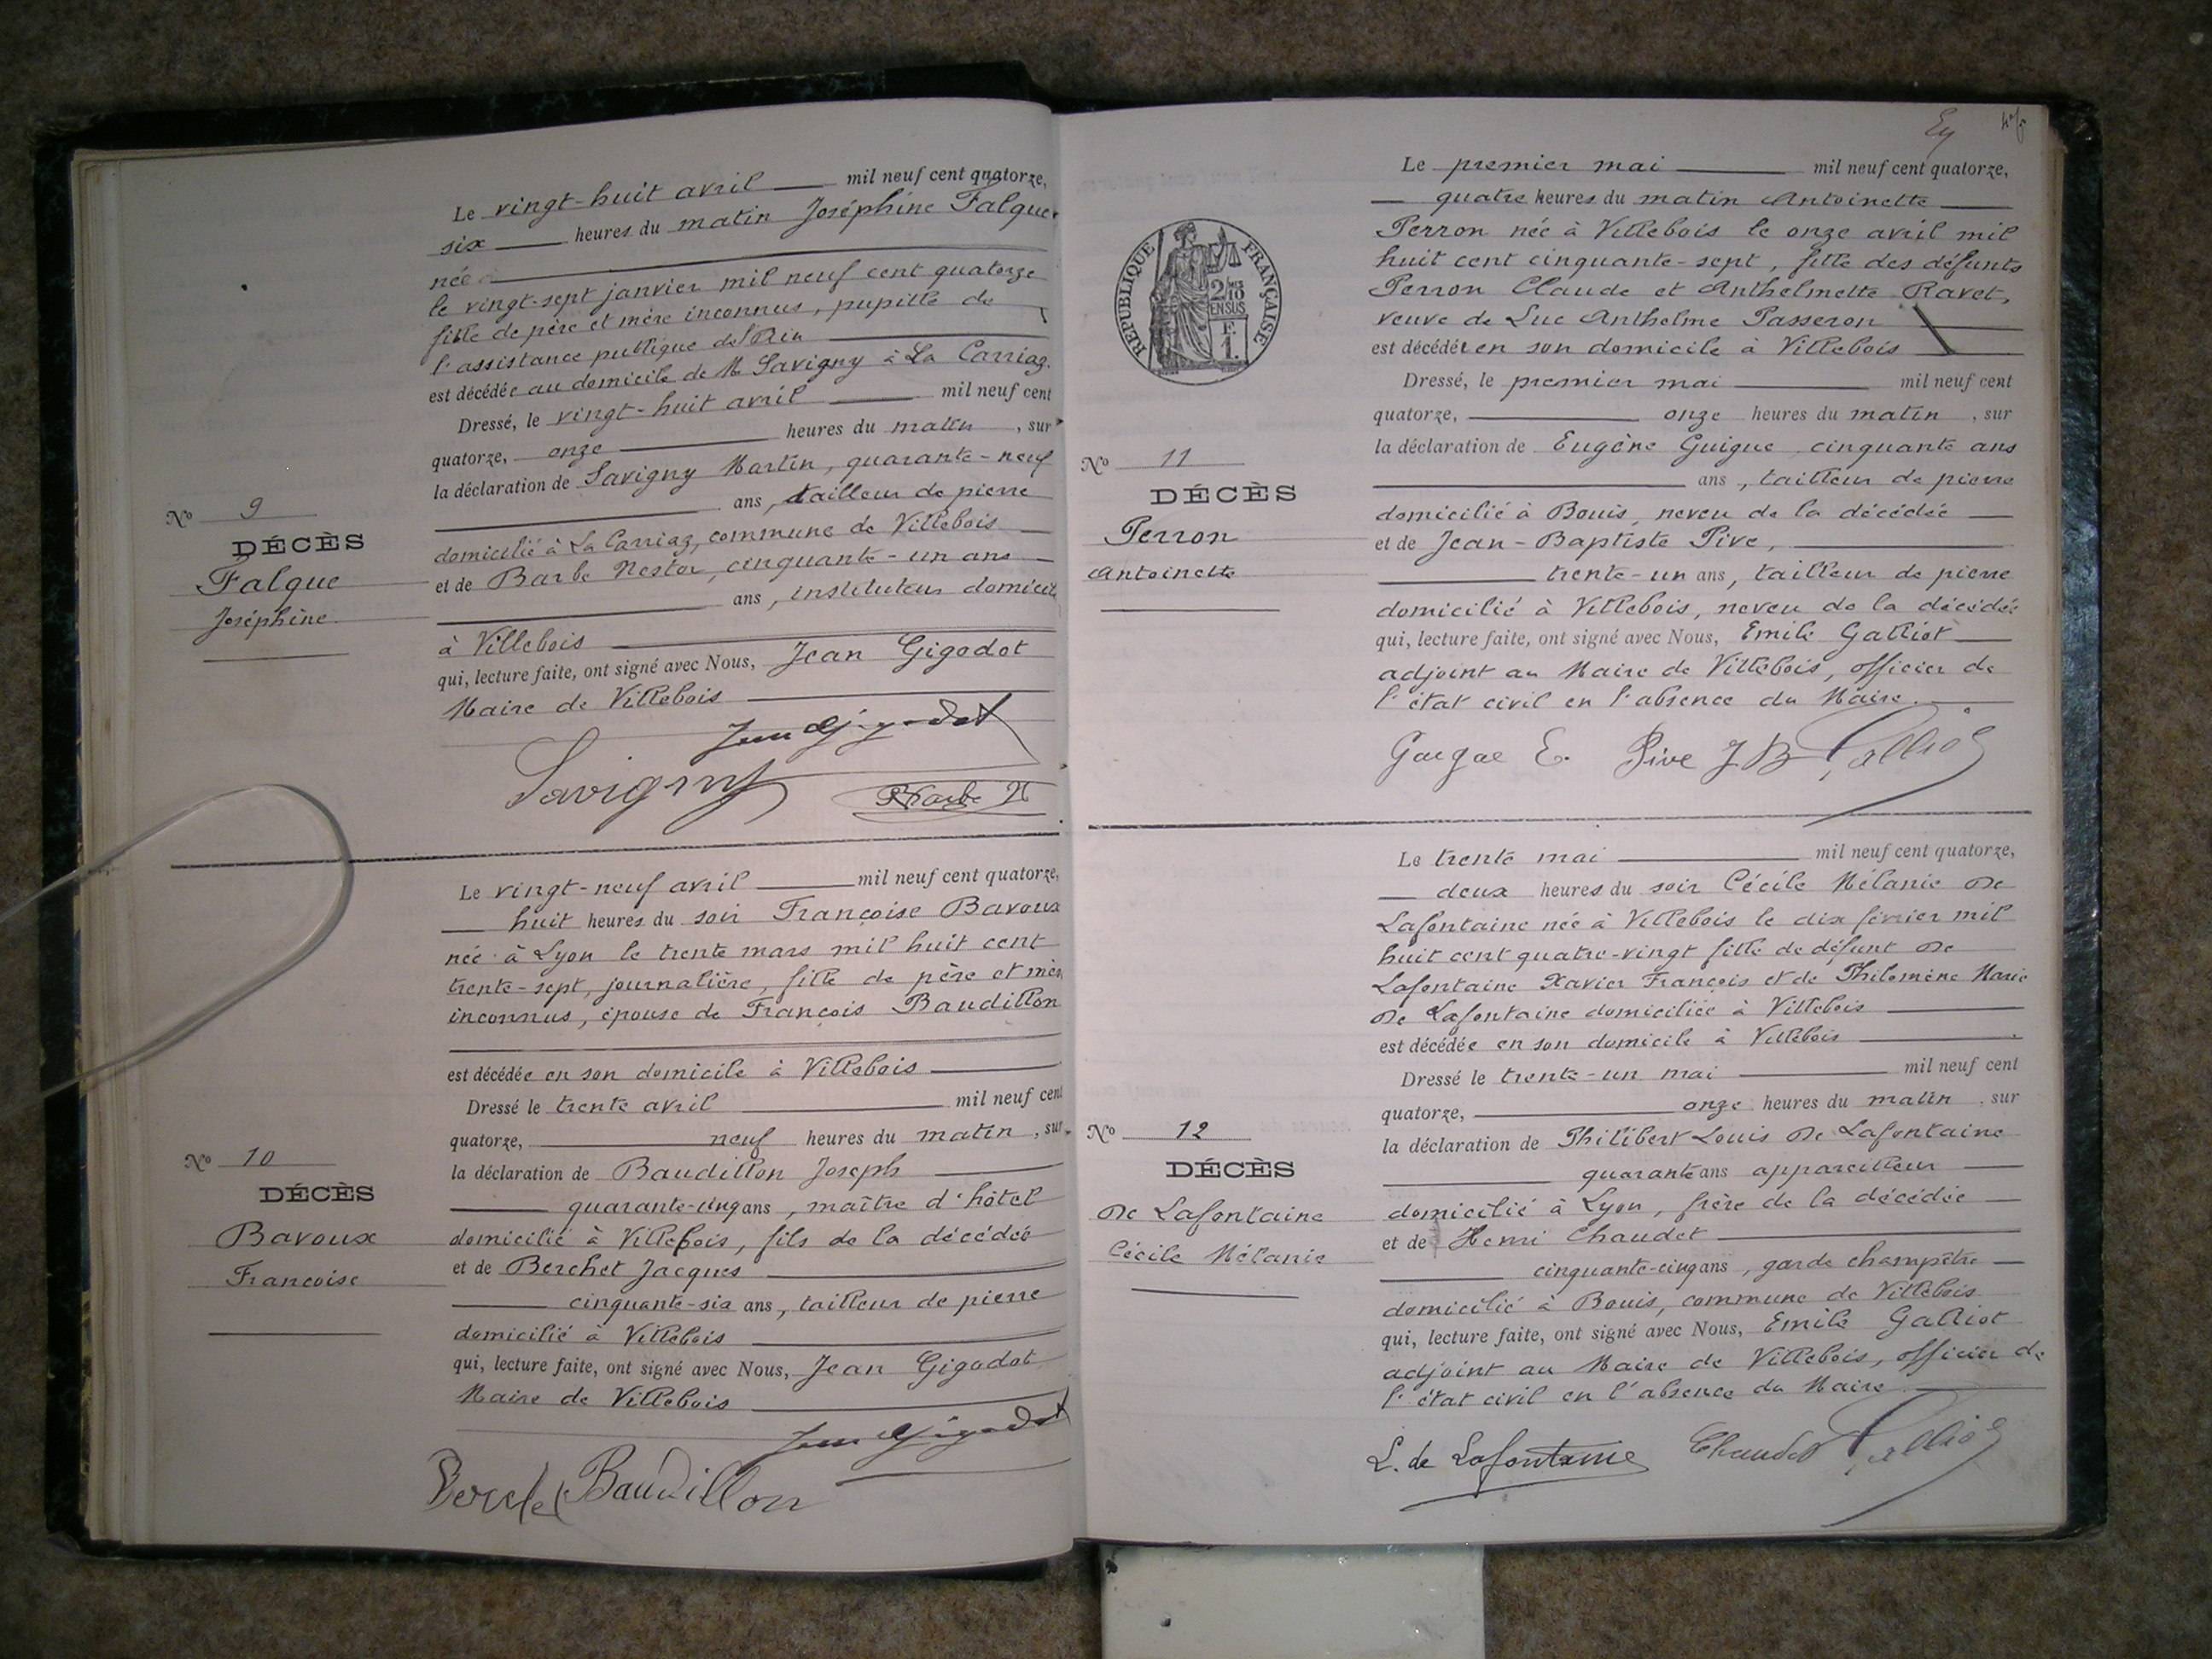 Le vingt-huit avril mil neuf cent quatorze,
six heures du matin Joséphine Falque
née
le vingt-sept janvier mil neuf cent quatorze
fille de père et mère inconnus, pupille de
l'assistance publique de l'Ain
est décédée au domicile de M Savigny à La Carriaz.
Dressé, le vingt-huit avril mil neuf cent
quatorze, onze heures du matin, sur
la déclaration de Savigny Martin, quarante-neuf
ans, tailleur de pierre
domicilié à La Carriaz, commune de Villebois
et de Barbe Nestor, cinquante-un ans
ans, instituteur domicilié
à Villebois
qui, lecture faite, ont signé avec Nous, Jean Gigodot
Maire de Villebois
Jean Gigodot
Savigny
Barbe N
No 9
DÉCÈS
Falque
Joséphine
Le vingt-neuf avril mil neuf cent quatorze,
huit heures du soir Françoise Bavoux
née à Lyon le trente mars mil huit cent
trente-sept, journalière, fille de père et mère
inconnus, épouse de François Baudillon
est décédée en son domicile à Villebois
Dressé le trente avril mil neuf cent
quatorze, neuf heures du matin, sur
la déclaration de Baudillon Joseph
quarante-cinq ans, maître d'hôtel
domicilié à Villebois, fils de la décédée
et de Berchet Jacques
cinquante-six ans, tailleur de pierre
domicilié à Villebois
qui, lecture faite, ont signé avec Nous, Jean Gigodot
Maire de Villebois
Jean Gigodot
Berchet Baudillon
No 10
DÉCÈS
Bavoux
Françoise
Le premier mai mil neuf cent quatorze,
quatre heures du matin Antoinette
Perron née à Villebois le onze avril mil
huit cent cinquante-sept, fille des défunts
Perron Claude et Anthelmette Ravet,
veuve de Luc Anthelme Passeron
est décédée en son domicile à Villebois
Dressé, le premier mai mil neuf cent
quatorze, onze heures du matin, sur
la déclaration de Eugène Guigue, cinquante ans
ans, tailleur de pierre
domicilié à Bouis, neveu de la décédée
et de Jean-Baptiste Pive,
trente-un ans, tailleur de pierre
domicilié à Villebois, neveu de la décédée
qui, lecture faite, ont signé avec Nous, Emile Galliot
adjoint au Maire de Villebois, officier de
l'état civil en l'absence du Maire.
Guigue E. Pive J B Galliot
RÉPUBLIQUE FRANÇAISE
2/10 EN SUS
F. 1.
No 11
DÉCÈS
Perron
Antoinette
Le trente mai mil neuf cent quatorze,
deux heures du soir Cécile Mélanie De
Lafontaine née à Villebois le dix février mil
huit cent quatre-vingt fille de défunt De
Lafontaine Xavier François et de Philomène Marie
De Lafontaine domiciliée à Villebois
est décédée en son domicile à Villebois
Dressé le trente-un mai mil neuf cent
quatorze, onze heures du matin, sur
la déclaration de Philibert Louis De Lafontaine
quarante ans appareilleur
domicilié à Lyon, frère de la décédée
et de Henri Chaudet
cinquante-cinq ans, garde champêtre
domicilié à Bouis, commune de Villebois
qui, lecture faite, ont signé avec Nous, Emile Galliot
adjoint au Maire de Villebois, officier de
l'état civil en l'absence du Maire
L. de Lafontaine Chaudet Galliot
No 12
DÉCÈS
De Lafontaine
Cécile Mélanie